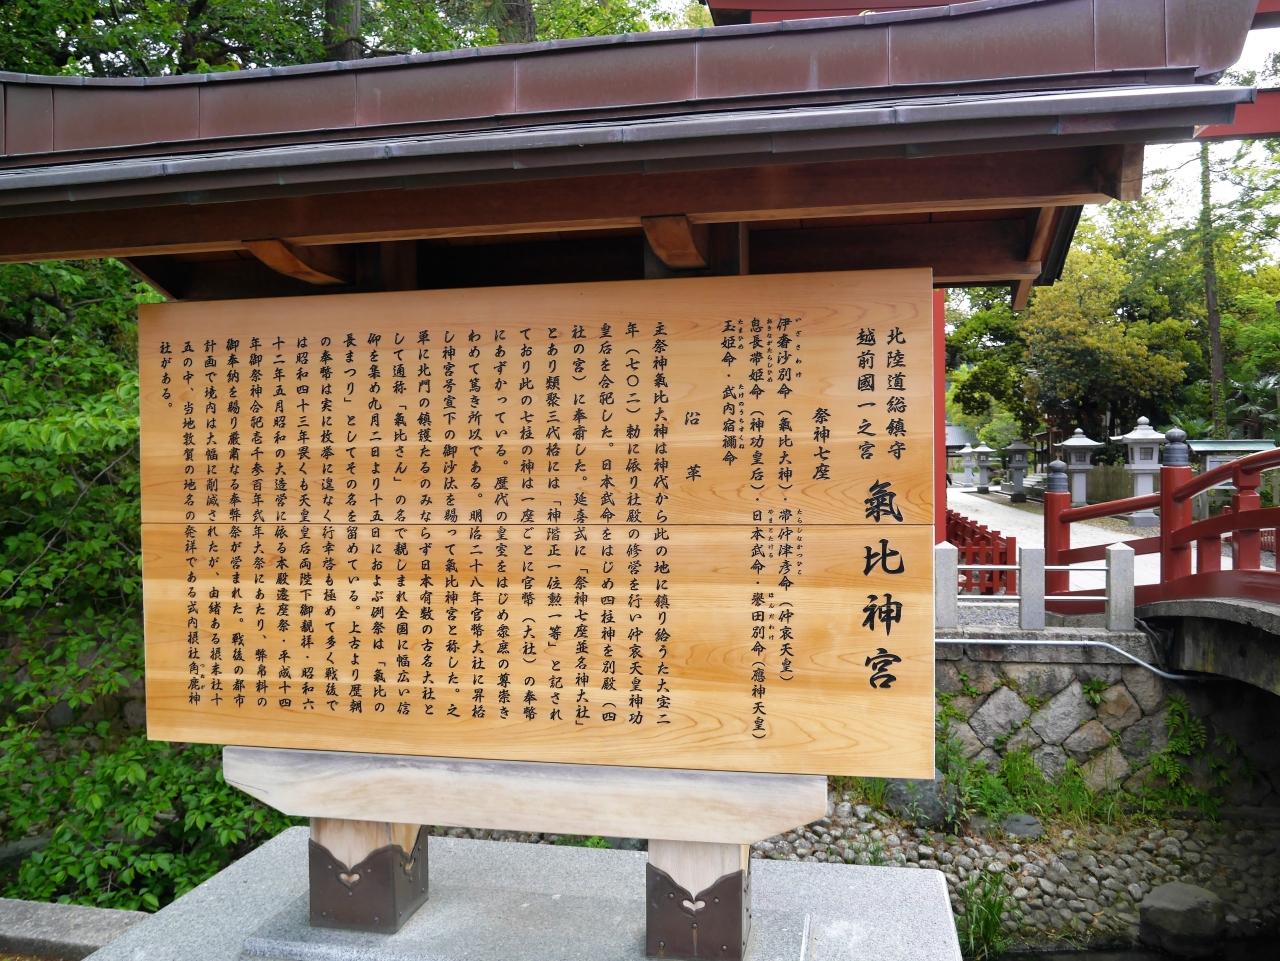 北陸道総鎮守
越前國一之宮
氣比神宮
祭神七座
伊奢沙別命（氣比大神）・帯仲津彦命（仲哀天皇）
いざさわけ
たらしなかつひこ
息長帯姫命（神功皇后）・日本武命・譽田別命（應神天皇）
おきながたらしひめ
やまとたける
ほんだわけ
玉姫命・武内宿禰命
たまひめ
たけのうちすくね
沿革
主祭神氣比大神は神代から此の地に鎮り給うた大宝二
年（七〇二）勅に依り社殿の修営を行い仲哀天皇神功
皇后を合祀した。日本武命をはじめ四柱神を別殿（四
社の宮）に奉斎した。延喜式に「祭神七座並名神大社」
とあり類聚三代格には「神階正一位勲一等」と記され
ており此の七柱の神は一座ごとに官幣（大社）の奉幣
にあずかっている。歴代の皇室をはじめ衆庶の尊崇き
わめて篤き所以である。明治二十八年官幣大社に昇格
し神宮号宣下の御沙汰を賜って氣比神宮と称した。之
単に北門の鎮護たるのみならず日本有数の古名大社と
して通称「氣比さん」の名で親しまれ全国に幅広い信
仰を集め九月二日より十五日におよぶ例祭は「氣比の
長まつり」としてその名を留めている。上古より歴朝
の奉幣は実に枚挙に遑なく行幸啓も極めて多く戦後で
は昭和四十三年畏くも天皇皇后両陛下御親拝 昭和六
十二年五月昭和の大造営に依る本殿遷座祭・平成十四
年御祭神合祀壱千参百年式年大祭にあたり、弊帛料の
御奉納を賜り厳粛なる奉弊祭が営まれた。戦後の都市
計画で境内は大幅に削減されたが、由緒ある摂末社十
五の中、当地敦賀の地名の発祥である式内摂社角鹿神
つぬが
社がある。